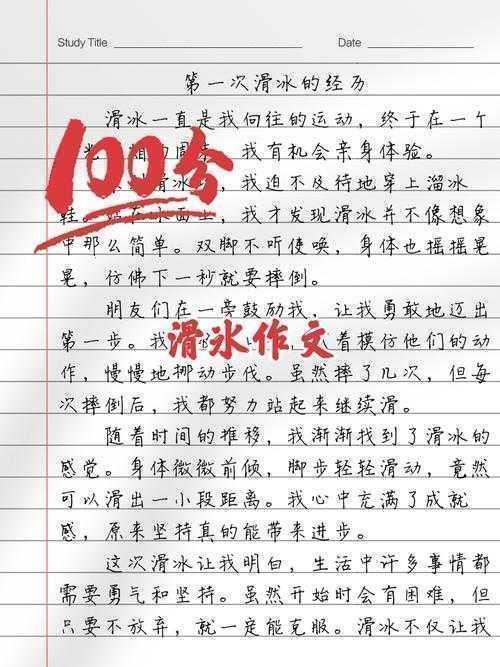 Study Title
Date
第一次滑冰的经历
滑冰一直是我向往的运动，终于在一个
的周末，我有机会亲身体验。
滑冰，我迫不及待地穿上溜冰
鞋。站在冰面上，我才发现滑冰并不像想象
中那么简单。双脚不听使唤，身体也摇摇晃
晃，仿佛下一秒就要摔倒。
100分
朋友们在一旁鼓励我，让我勇敢地迈出
第一步。我着模仿他们的动
滑冰作文
作，慢慢地挪动步伐。虽然摔了几次，但每
次摔倒后，我都努力站起来继续滑。
随着时间的推移，我渐渐找到了滑冰的
感觉。身体微微前倾，脚步轻轻滑动，竟然
可以滑出一小段距离。我心中充满了成就
感，原来坚持真的能带来进步。
这次滑冰让我明白，生活中许多事情都
需要勇气和坚持。虽然开始时会有困难，但
只要不放弃，就一定能克服。滑冰不仅让我